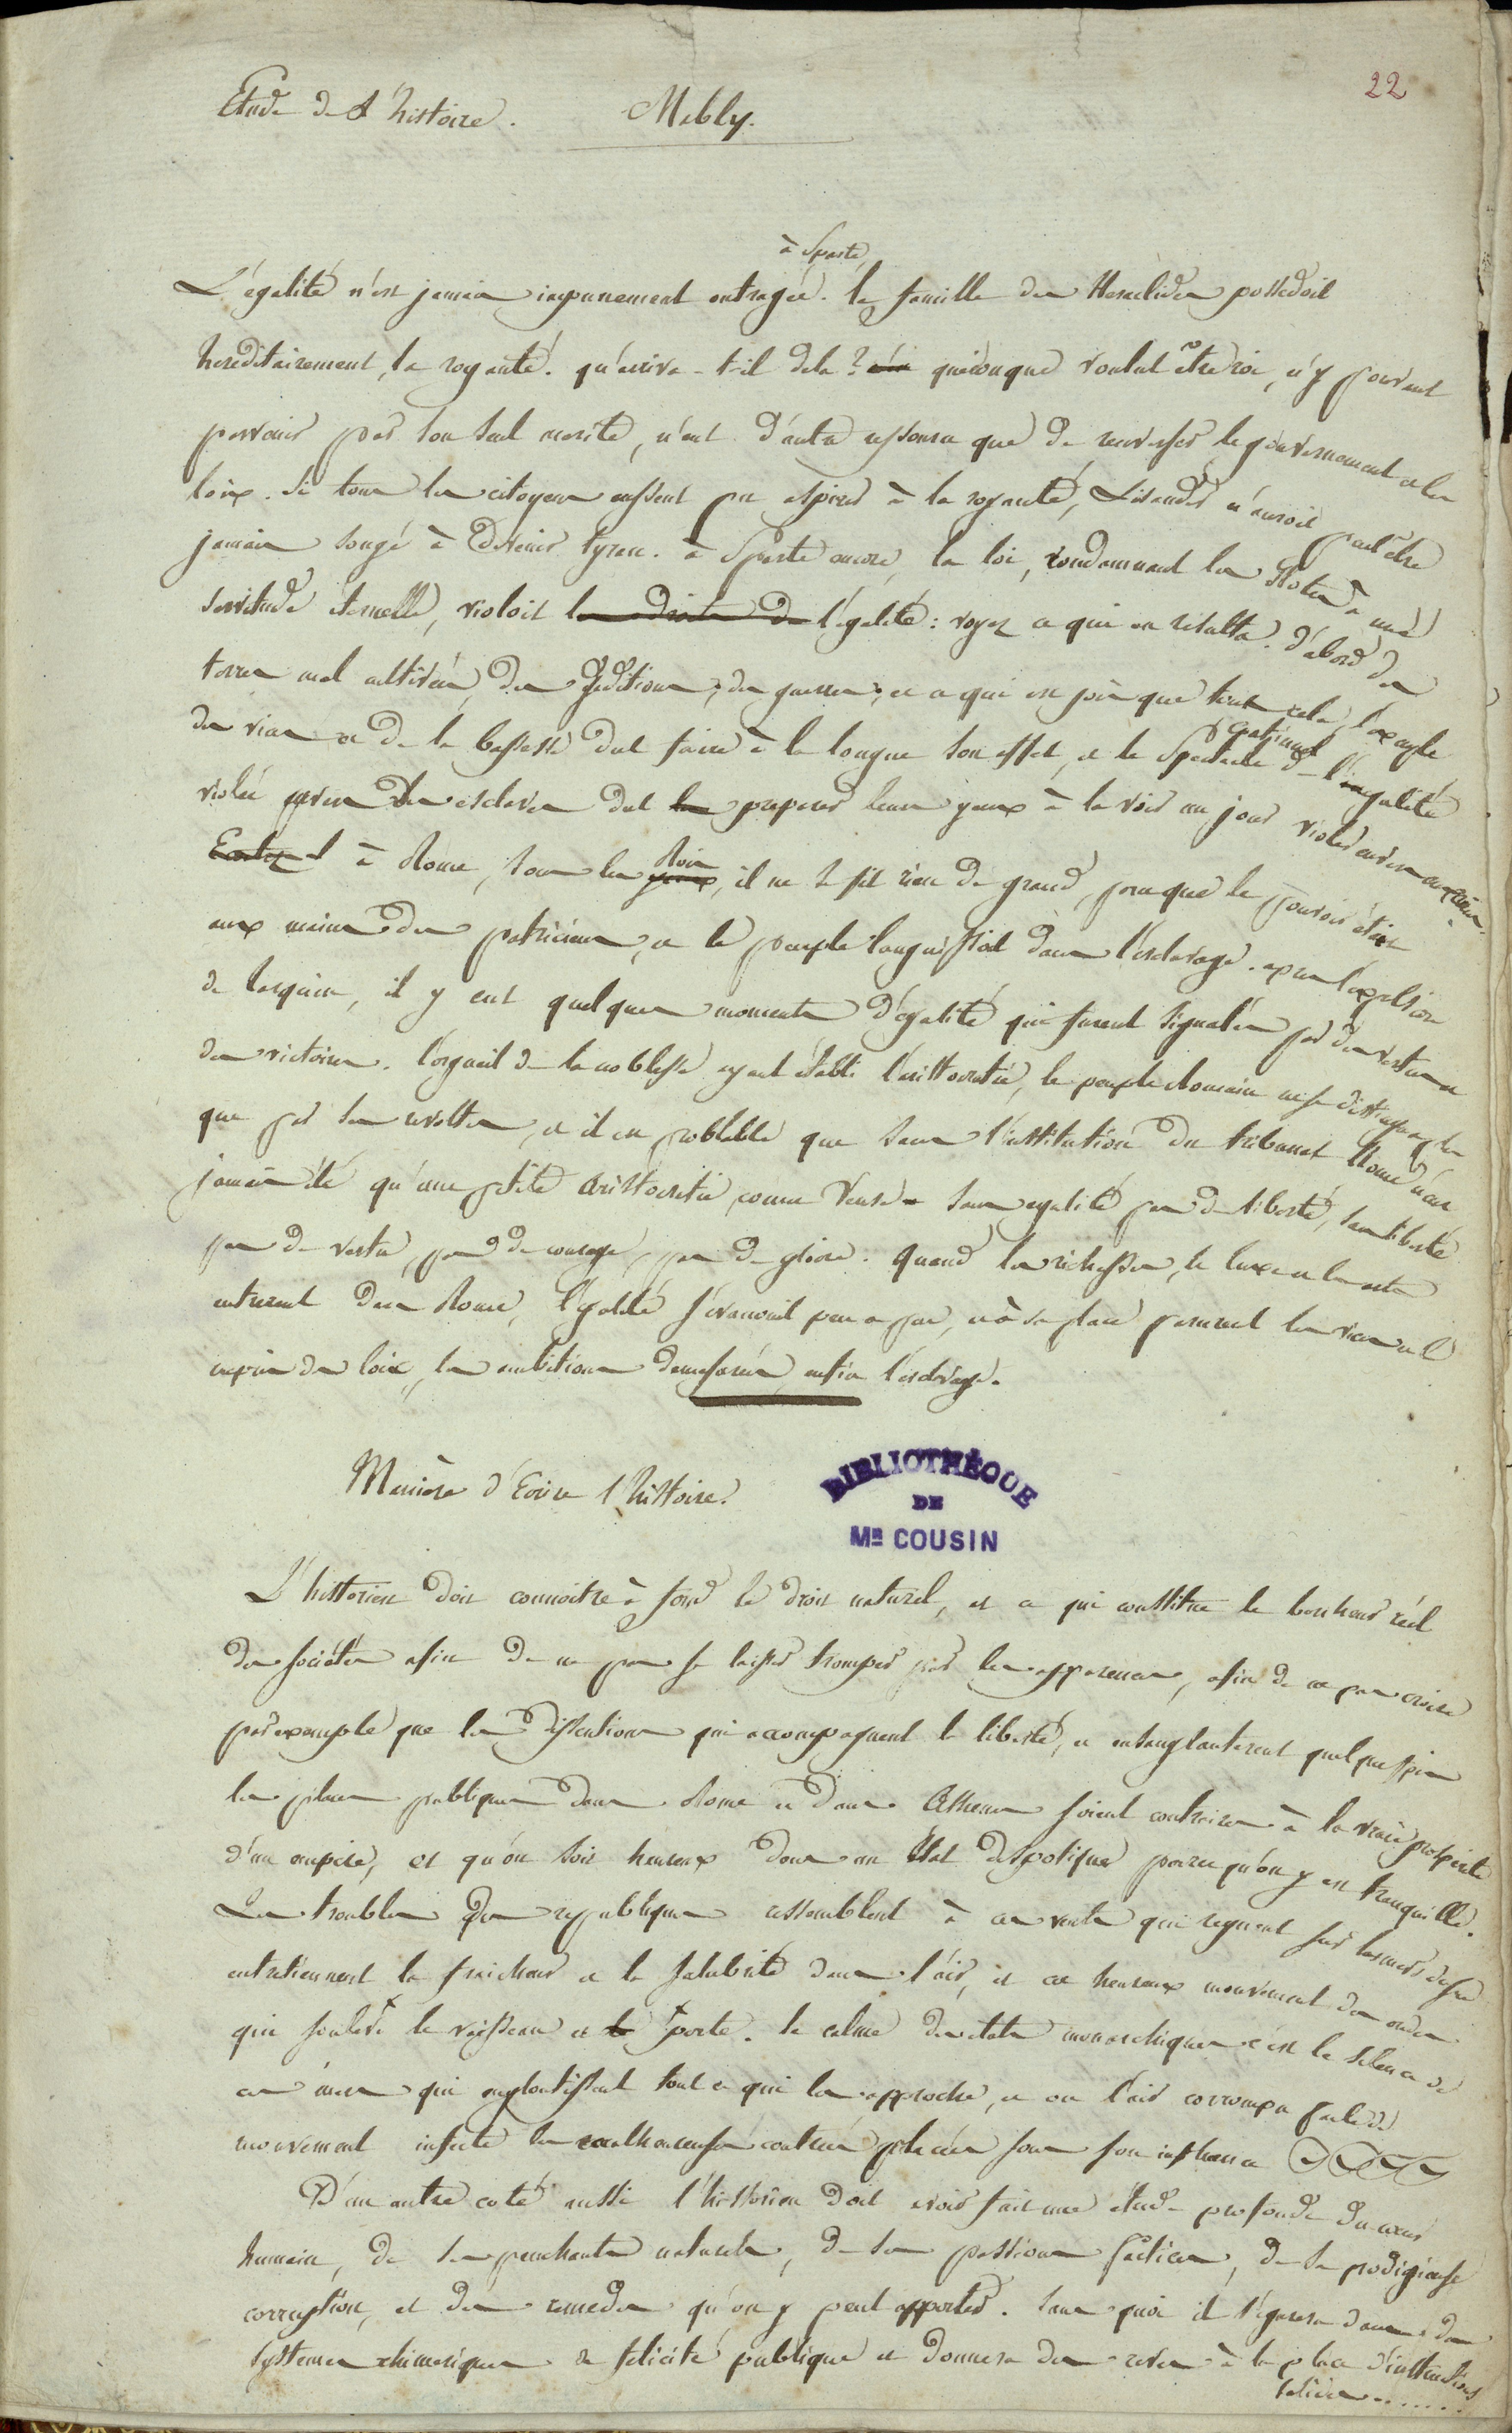 22
Etude de l'histoire. Mably.
à Sparte,
L'égalité n'est jamais impunement outragée. la famille des Heraclides possedoit
hereditairement, la royauté. qu'arriva-t-il dela? quiconque voulut être roi, n'y pouvant
parvenir par son seul merite, n'eut d'autre ressource que de renverser le gouvernement et les
loix. Si tous les citoyens eussent pu aspirer à la royauté, Lisandre n'auroit peut être
jamais songé à devenir tyran. à Sparte encore, la loi, condamnant les Ilotes à une
servitude éternelle, violoit les droits de l'égalité: voyez ce qui en resulta. d'abord des
terres mal cultivées, des seditions, des guerres; et ce qui est pis que tout cela, l'exemple
continuel
des vices et de la bassesse dut faire à la longue son effet, et le spectacle de l'égalité
violée envers des esclaves dut preparer leurs yeux à la voir un jour violer envers eux mêmes.
Rois
à Rome, sous les yeux, il ne se fit rien de grand, parceque le pouvoir étoit
aux mains des patriciens, et le peuple languissoit dans l'esclavage. après l'expulsion
de tarquin, il y eut quelques moments d'égalité qui furent signalés par des vertus et
des victoires. l'orgueil de la noblesse ayant établi l'aristocratie, le peuple Romain ne se distingua plus
que par ses revoltes, et il est probable que sans l'institution du tribunat Rome n'eut
jamais été qu'une petite aristocratie comme Venise. sans egalité pas de liberté, sans liberté
pas de vertu, pas de courage, pas de gloire. quand les richesses, le luxe et les arts
entrerent dans Rome, l'égalité s'evanouit peu a peu, et à sa place parurent les vices et le
mepris des loix, les ambitions demesurées, enfin l'esclavage.
Manière d'Ecrire l'histoire.
BIBLIOTHÈQUE
DE
MR COUSIN
L'historien doit connoitre à fond le droit naturel, et ce qui constitue le bonheur réel
des sociétés afin de ne pas se laisser tromper par les apparences, afin de ne pas croire
par exemple que les dissentions qui accompagnent la liberté, et ensanglanterent quelquefois
les places publiques dans Rome et dans Athenes soient contraires à la vraie prosperité
d'un empire, et qu'on soit heureux dans un état despotique parcequ'on y est tranquille.
Les troubles des republiques ressemblent à ces vents qui regnent sur les mers
entretiennent la fraicheur et la salubrité dans l'air, et ce heureux mouvement des ondes
qui souleve le vaisseau et le porte. le calme des etats monarchiques c'est le silence de
ces mers qui engloutissent tout ce qui les approche, et ou l'air corrompu faute de
mouvement infecte les malheureuses contrées placées sous son influence
D'un autre coté aussi l'historien doit avoir fait une étude profonde du coeur
humain, de ses penchants naturels, de ses passions factices, de sa prodigieuse
corruption, et des remedes qu'on y peut apporter. sans quoi il s'égarera dans des
systemes chimeriques de felicité publique et donnera des reves à la place d'instructions
solides.......